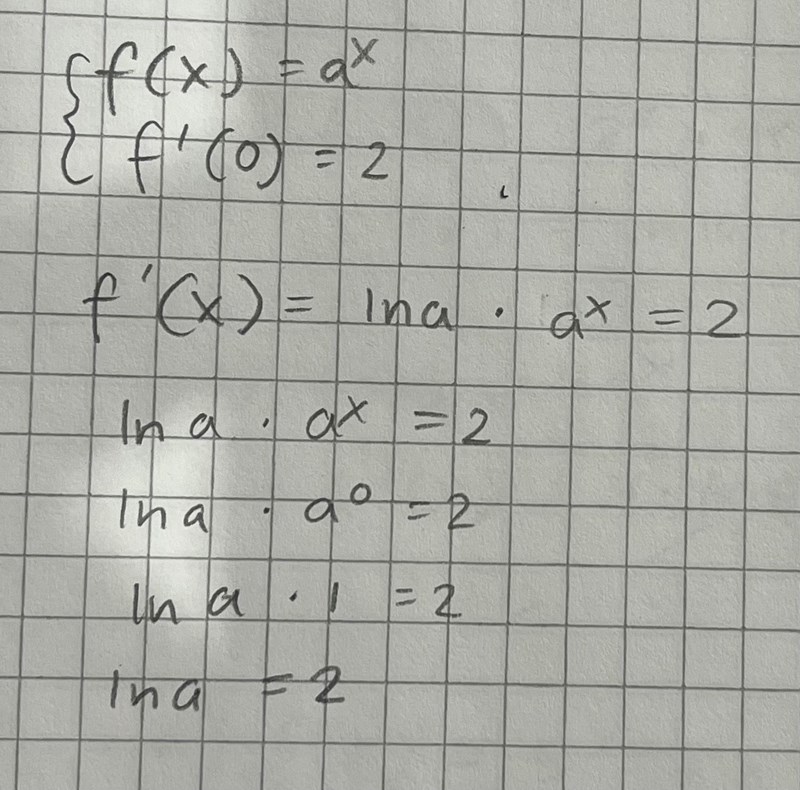 { f(x) = aˣ
f'(0) = 2
f'(x) = ln a · aˣ = 2
ln a · aˣ = 2
ln a · a⁰ = 2
ln a · 1 = 2
ln a = 2